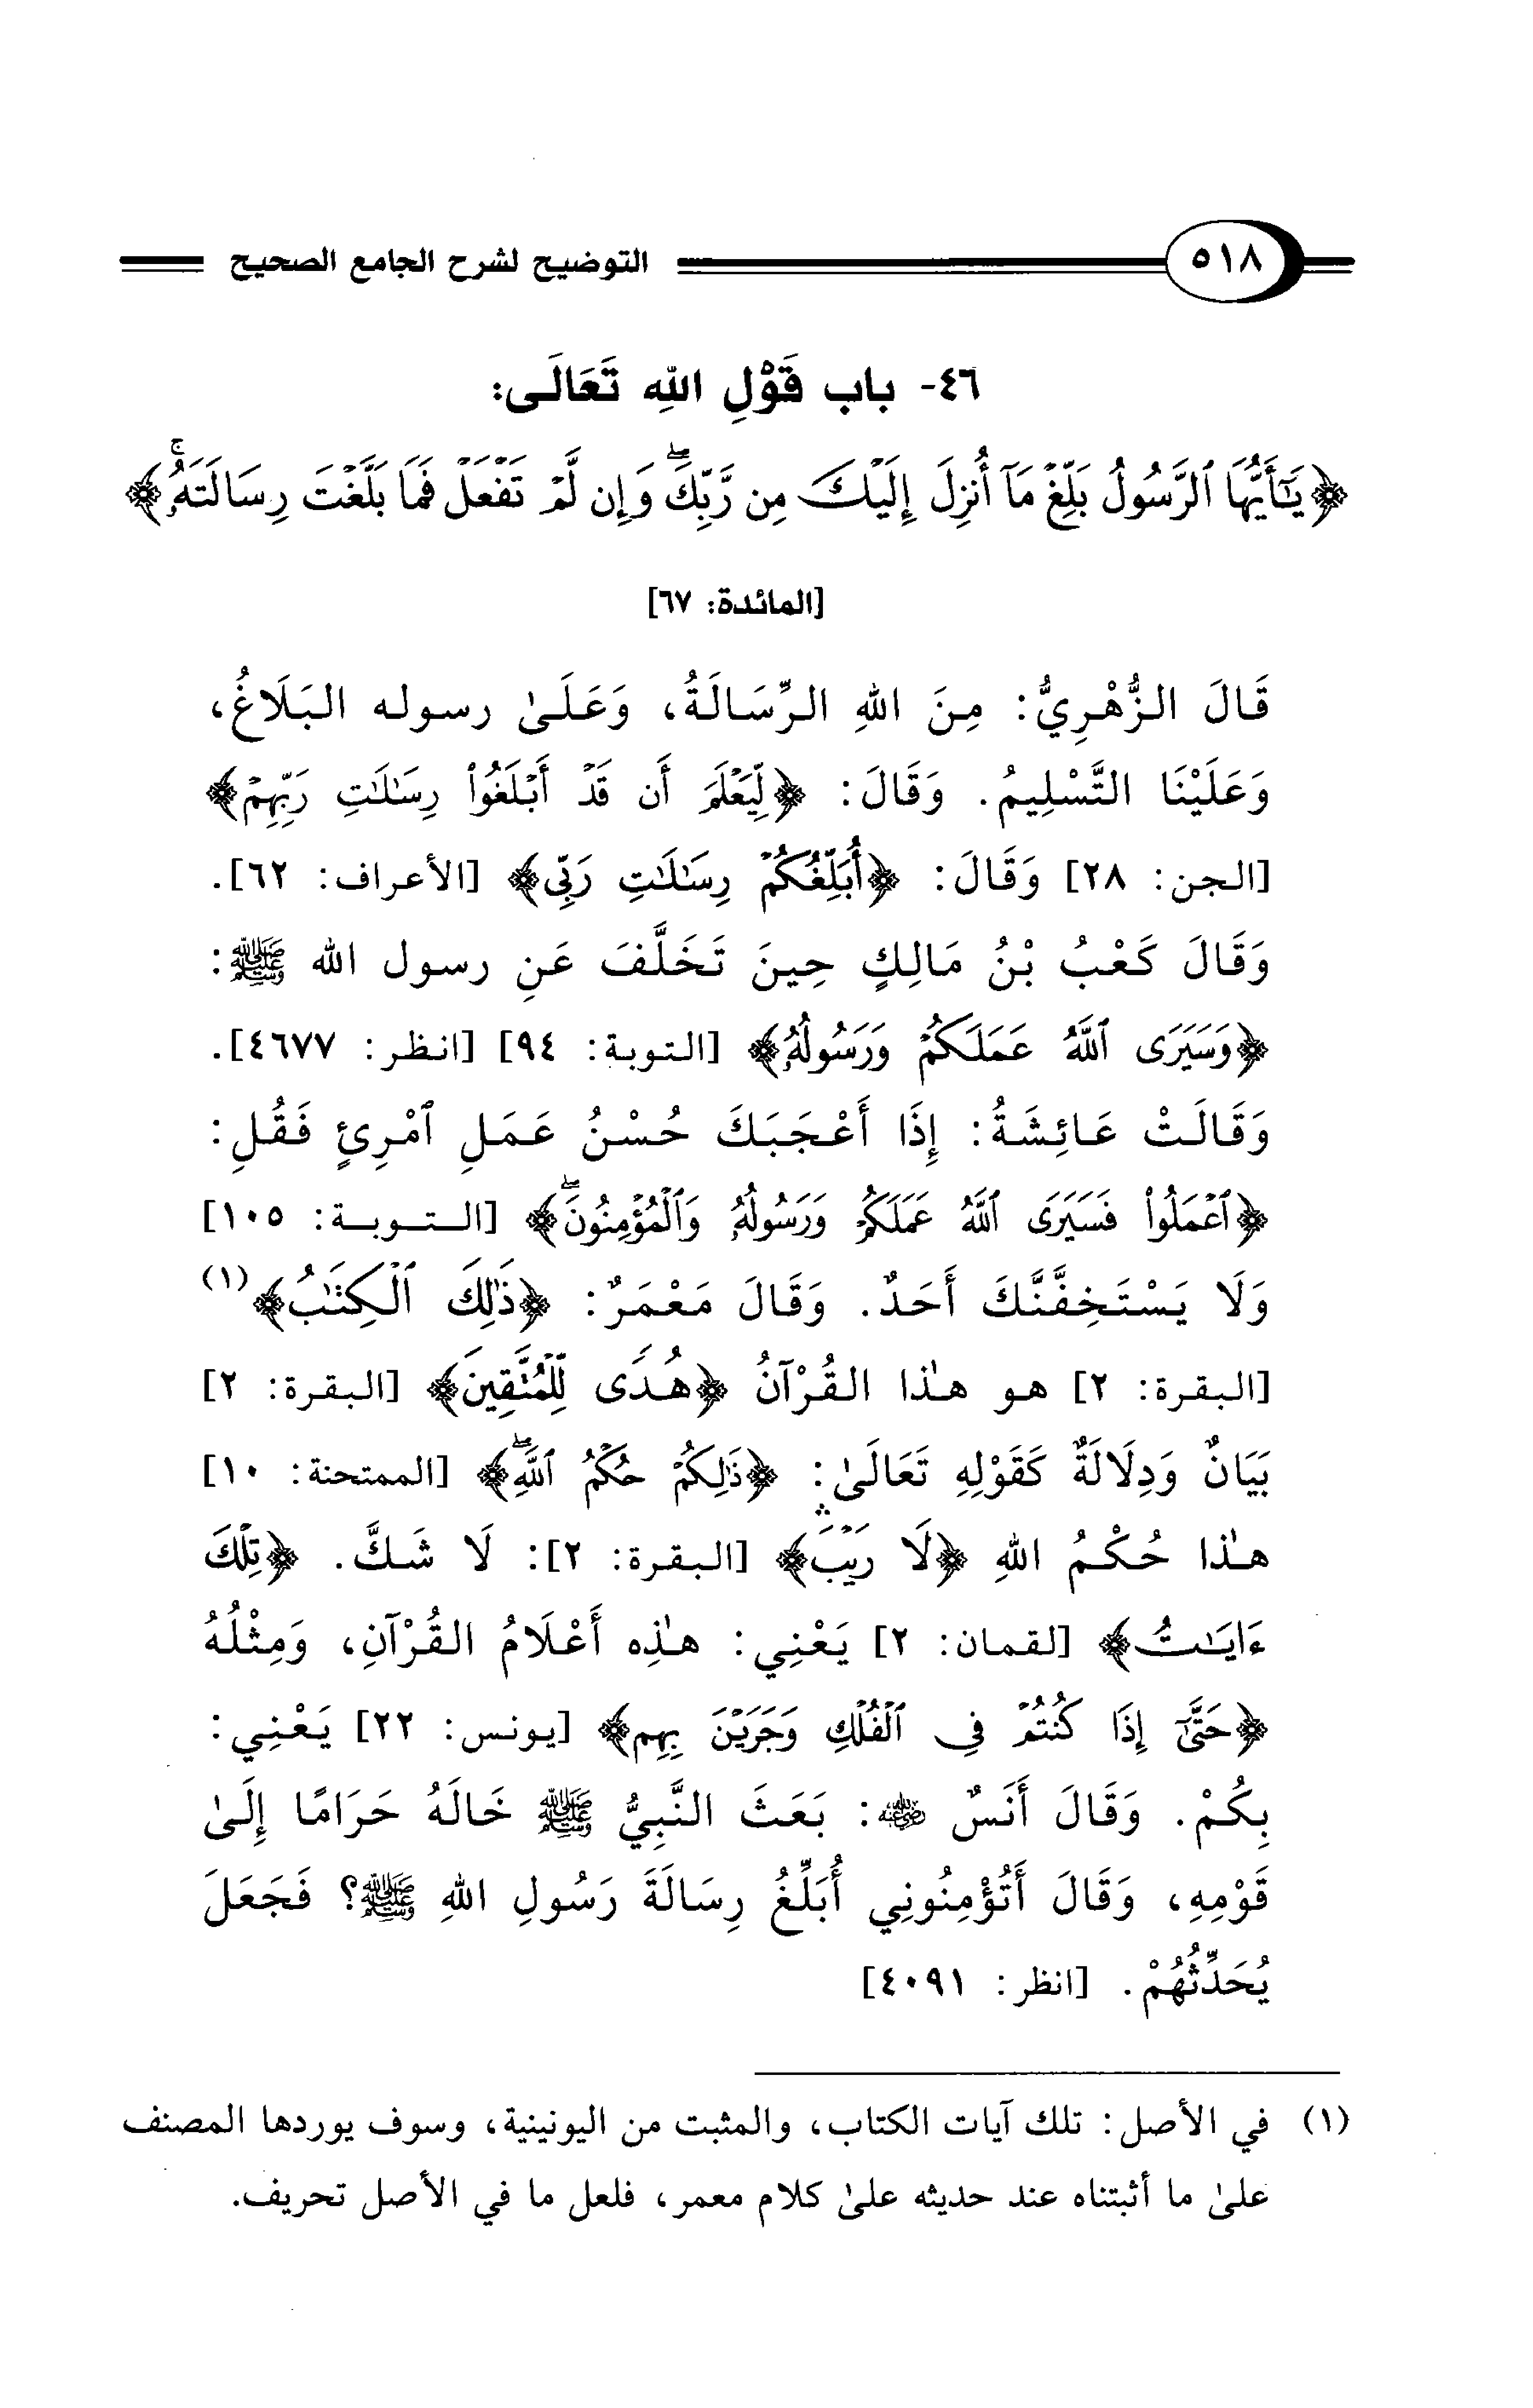 ٥١٨ التوضيح لشرح الجامع الصحيح
٤٦- باب قَوْلِ اللهِ تَعَالَى:
﴿يَٰٓأَيُّهَا ٱلرَّسُولُ بَلِّغۡ مَآ أُنزِلَ إِلَيۡكَ مِن رَّبِّكَۖ وَإِن لَّمۡ تَفۡعَلۡ فَمَا بَلَّغۡتَ رِسَالَتَهُۥۚ﴾
[المائدة: ٦٧]
قَالَ الزُّهْرِيُّ: مِنَ اللهِ الرِّسَالَةُ، وَعَلَىٰ رسوله البَلَاغُ،
وَعَلَيْنَا التَّسْلِيمُ. وَقَالَ: ﴿لِّيَعۡلَمَ أَن قَدۡ أَبۡلَغُواْ رِسَٰلَٰتِ رَبِّهِمۡ﴾
[الجن: ٢٨] وَقَالَ: ﴿أُبَلِّغُكُمۡ رِسَٰلَٰتِ رَبِّى﴾ [الأعراف: ٦٢].
وَقَالَ كَعْبُ بْنُ مَالِكٍ حِينَ تَخَلَّفَ عَنِ رسول الله ﷺ:
﴿وَسَيَرَى ٱللَّهُ عَمَلَكُمۡ وَرَسُولُهُۥ﴾ [التوبة: ٩٤] [انظر: ٤٦٧٧].
وَقَالَتْ عَائِشَةُ: إِذَا أَعْجَبَكَ حُسْنُ عَمَلِ ٱمْرِئٍ فَقُلِ:
﴿ٱعۡمَلُواْ فَسَيَرَى ٱللَّهُ عَمَلَكُمۡ وَرَسُولُهُۥ وَٱلۡمُؤۡمِنُونَۖ﴾ [التوبة: ١٠٥]
وَلَا يَسْتَخِفَّنَّكَ أَحَدٌ. وَقَالَ مَعْمَرٌ: ﴿ذَٰلِكَ ٱلۡكِتَٰبُ﴾(١)
[البقرة: ٢] هو هٰذا القُرْآنُ ﴿هُدًى لِّلۡمُتَّقِينَ﴾ [البقرة: ٢]
بَيَانٌ وَدِلَالَةٌ كَقَوْلِهِ تَعَالَىٰ: ﴿ذَٰلِكُمۡ حُكۡمُ ٱللَّهِۖ﴾ [الممتحنة: ١٠]
هٰذا حُكْمُ اللهِ ﴿لَا رَيۡبَۛ﴾ [البقرة: ٢]: لَا شَكَّ. ﴿تِلۡكَ
ءَايَٰتُ﴾ [لقمان: ٢] يَعْنِي: هٰذِه أَعْلَامُ القُرْآنِ، وَمِثْلُهُ
﴿حَتَّىٰٓ إِذَا كُنتُمۡ فِى ٱلۡفُلۡكِ وَجَرَيۡنَ بِهِم﴾ [يونس: ٢٢] يَعْنِي:
بِكُمْ. وَقَالَ أَنَسٌ رضي الله عنه: بَعَثَ النَّبِيُّ ﷺ خَالَهُ حَرَامًا إِلَىٰ
قَوْمِهِ، وَقَالَ أَتُؤْمِنُونِي أُبَلِّغُ رِسَالَةَ رَسُولِ اللهِ ﷺ؟ فَجَعَلَ
يُحَدِّثُهُمْ. [انظر: ٤٠٩١]
(١) في الأصل: تلك آيات الكتاب، والمثبت من اليونينية، وسوف يوردها المصنف
علىٰ ما أثبتناه عند حديثه علىٰ كلام معمر، فلعل ما في الأصل تحريف.